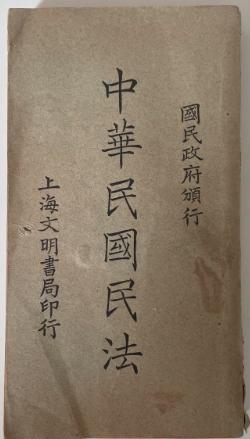 國民政府頒行
中華民國民法
上海文明書局印行